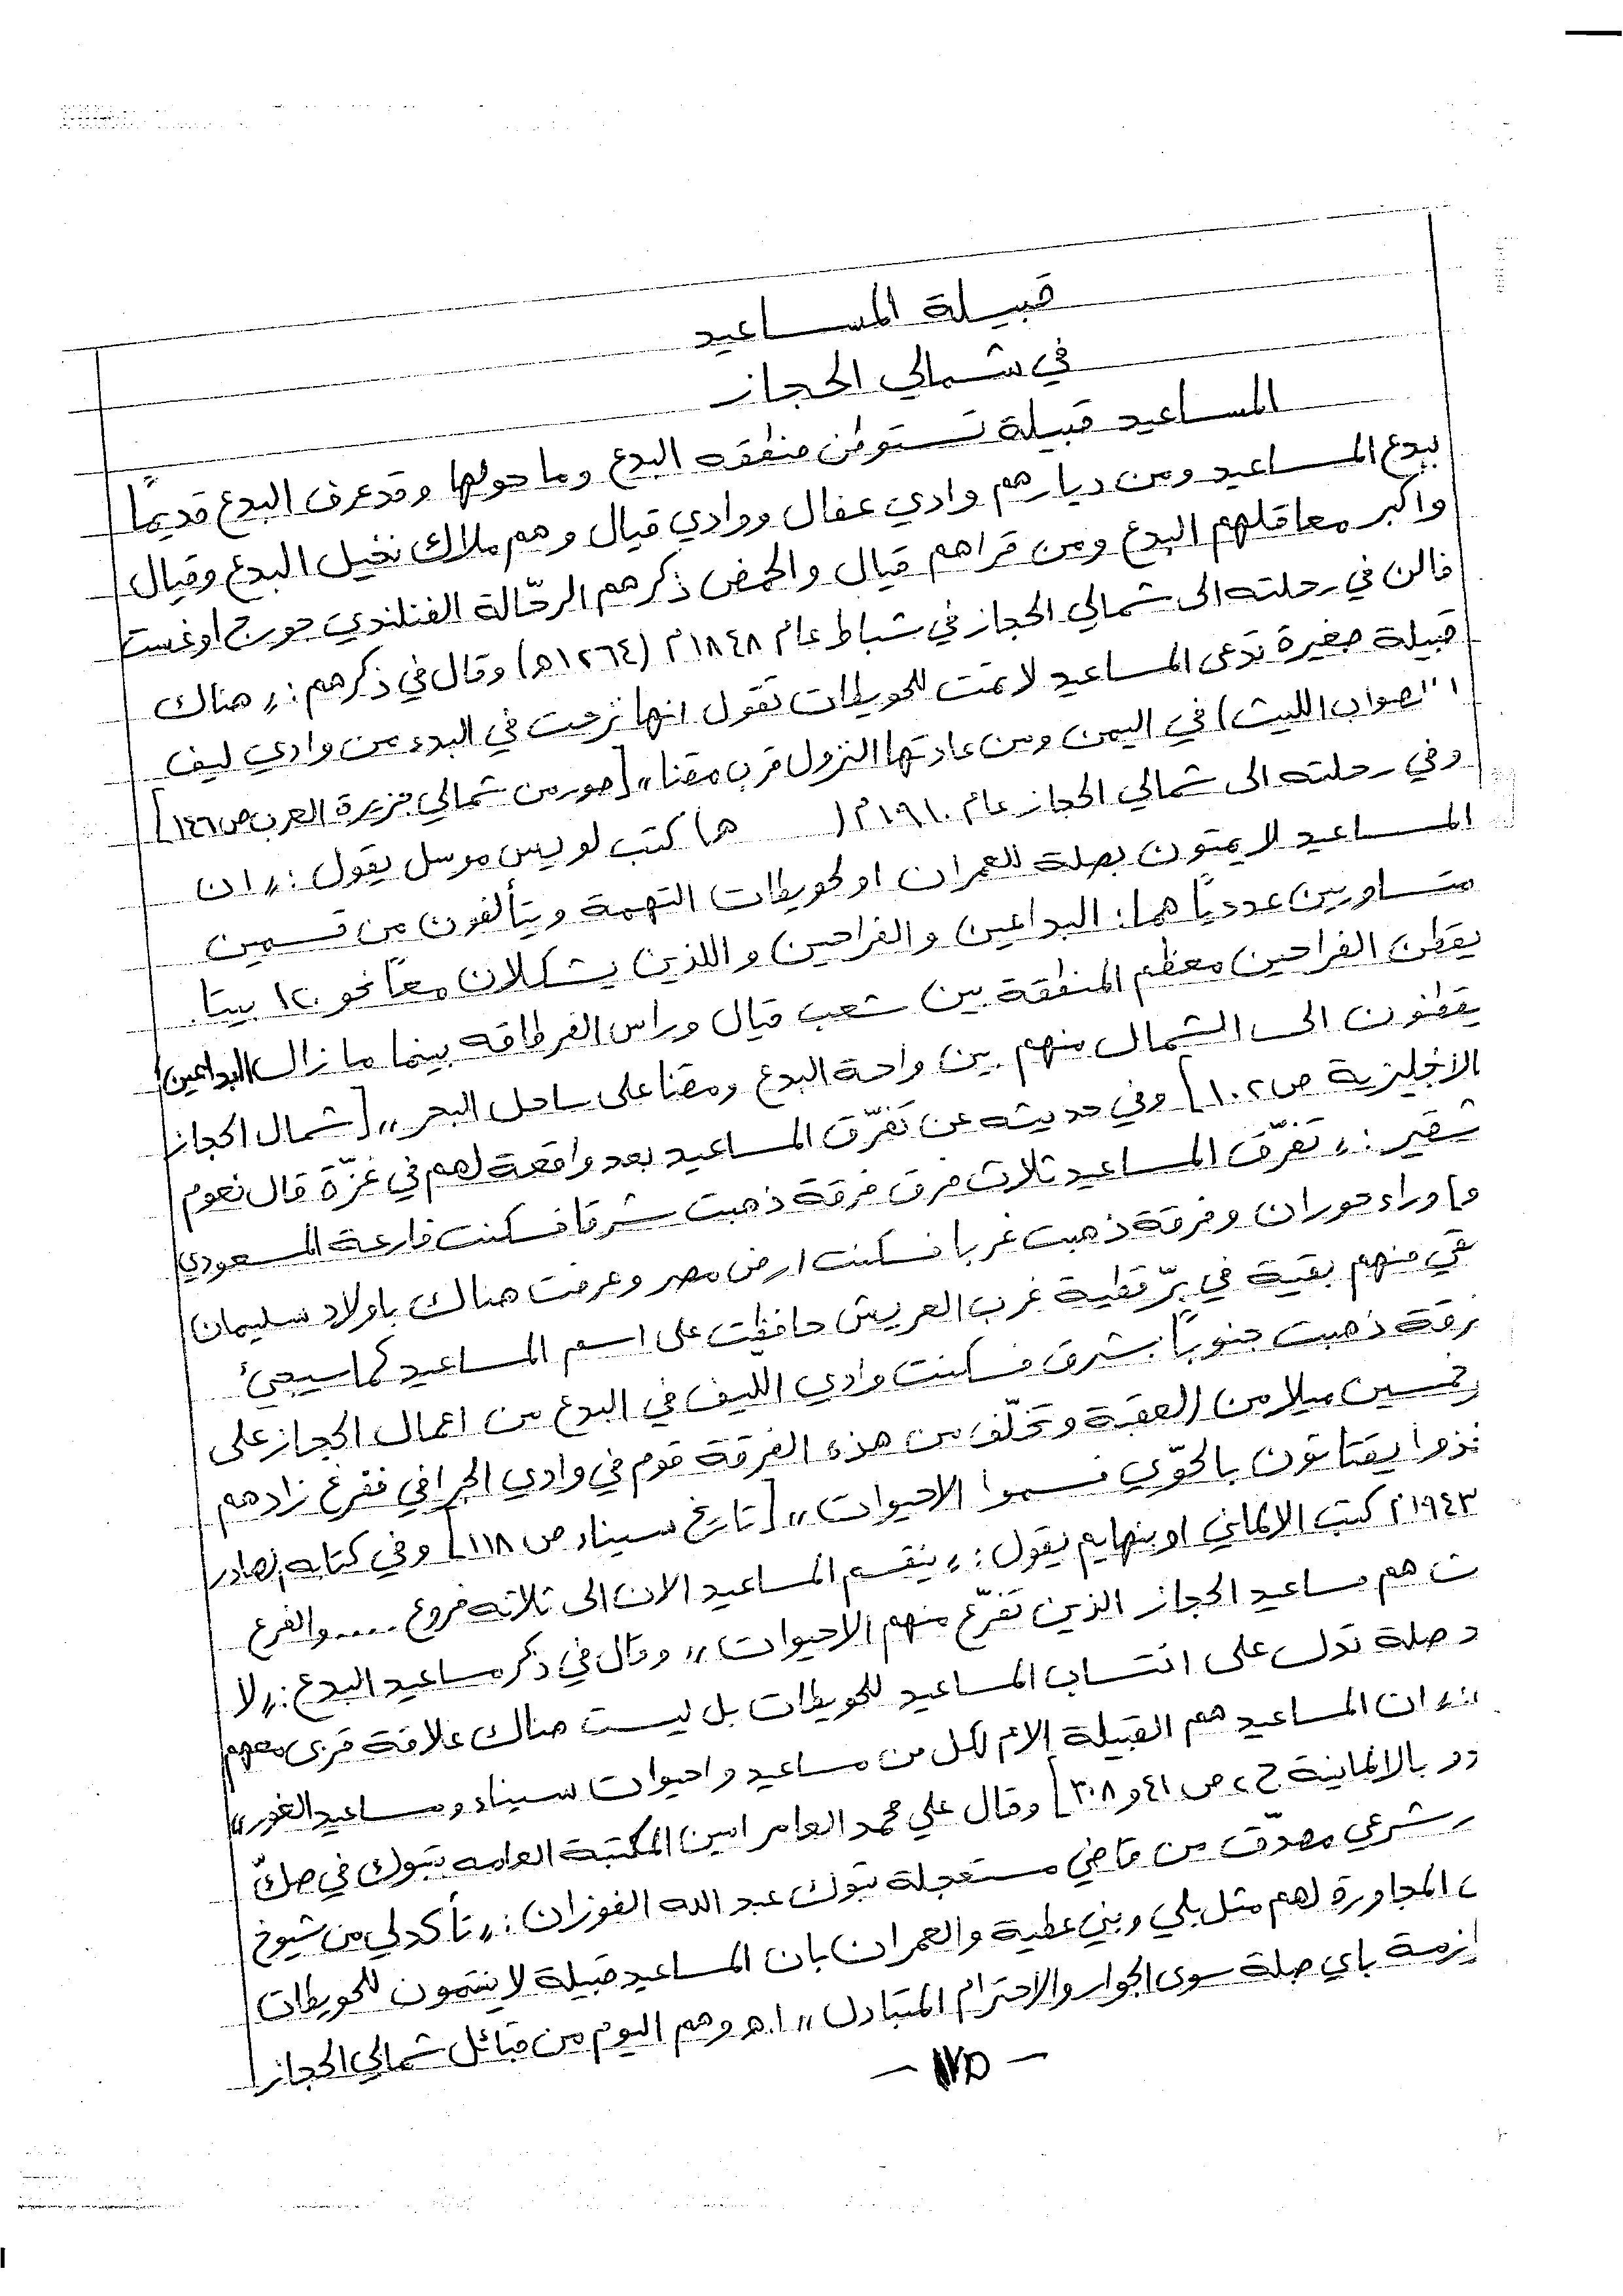 قبيلة المساعيد
في شمالي الحجاز
المساعيد قبيلة تستوطن منطقه البدع وما حولها وقد عرف البدع قديمًا
ببدع المساعيد ومن ديارهم وادي عفال ووادي قيال وهم ملاك نخيل البدع وقيال
واكبر معاقلهم البدع ومن قراهم قيال والحمض ذكرهم الرحّالة الفنلندي جورج اوغست
فالن في رحلته الى شمالي الحجاز في شباط عام ١٨٤٨م (١٢٦٤ه) وقال في ذكرهم: "هناك
قبيلة صغيرة تدعى المساعيد لا تمت للحويطات تقول انها نزحت في البدء من وادي ليف
الصواب الليث) في اليمن ومن عادتها النزول قرب مقنا" [صور من شمالي جزيرة العرب ص١٤٦]
وفي رحلته الى شمالي الحجاز عام ١٩١٠م ( ها كتب لويس موسل يقول: "ان
المساعيد لا يمتون بصلة للعمران او لحويطات التهمة ويتألفون من قسمين
متساويين عدديًا هما: البداعين والفراحين واللذين يشكلان معًا نحو ١٢٠ بيتا.
يقطن الفراحين معظم المنطقة بين شعب قيال وراس الفرطاقه بينما ما زال (البداعين)
يقطنون الى الشمال منهم بين واحة البدع ومقنا على ساحل البحر" [شمال الحجاز
الانجليزية ص١٠٢] وفي حديثه عن تفرّق المساعيد بعد واقعة لهم في غزّة قال نعوم
شقير: "تفرّق المساعيد ثلاث فرق فرقة ذهبت شرقا فسكنت فارعة المسعودي
وما وراء حوران وفرقة ذهبت غربا فسكنت ارض مصر وعرفت هناك باولاد سليمان
قي منهم بقية في برّ قطية غرب العريش حافظت على اسم المساعيد كما سيجئ
رقة ذهبت جنوبًا بشرق فسكنت وادي الليف في البدع من اعمال الحجاز على
خمسين ميلا من العقبة وتخلّف من هذه الفرقة قوم في وادي الجرافي ففرغ زادهم
خذوا يقتاتون بالحوّي فسموا الاحيوات" [تاريخ سيناء ص ١١٨] وفي كتابه الصادر
١٩٤٣م كتب الالماني اوبنهايم يقول: "ينقسم المساعيد الان الى ثلاثه فروع ..... والفرع
ث هم مساعيد الحجاز الذين تفرّع منهم الاحيوات" وقال في ذكر مساعيد البدع: "لا
د صلة تدل على انتساب المساعيد للحويطات بل ليست هناك علاقة قربى معهم
ان المساعيد هم القبيلة الام لكل من مساعيد واحيوات سيناء ومساعيد الغور"
دو بالالمانية ج٢ ص ٤١ و ٣٠٨] وقال علي محمد العامر امين المكتبة العامه بتبوك في صكّ
ر شرعي مصدّق من قاضي مستعجلة تبوك عبد الله الفوزان: "تأكد لي من شيوخ
المجاورة لهم مثل بلي وبني عطية والعمران بان المساعيد قبيلة لا ينتمون للحويطات
زمة باي صلة سوى الجوار والاحترام المتبادل" ا.ه وهم اليوم من قبائل شمالي الحجاز